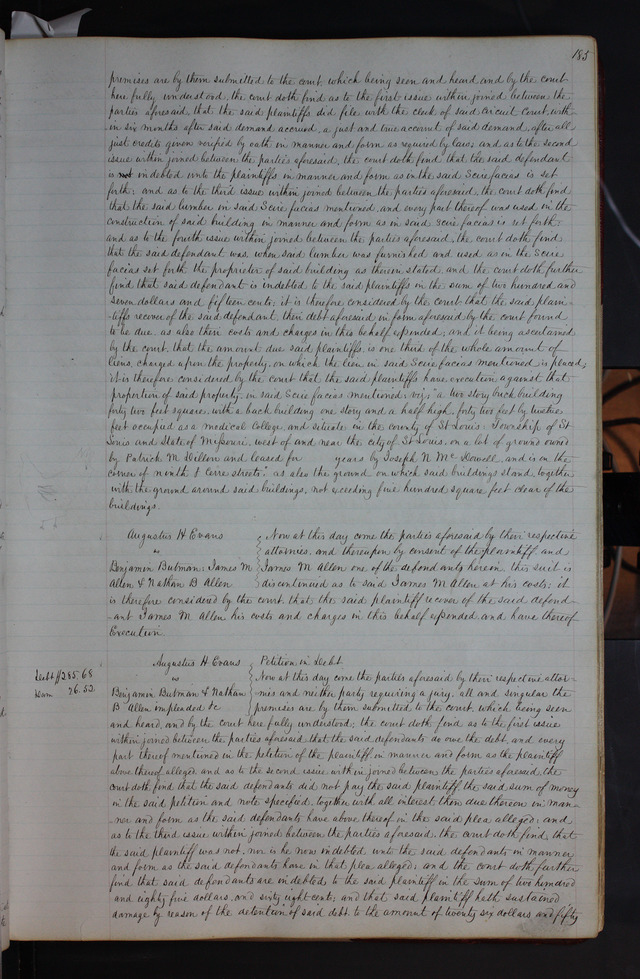 185
premises are by them submitted to the court, which being seen and heard and by the court
here fully understood, the court doth find as to the first issue within joined between the
parties aforesaid, that the said plaintiffs did file with the clerk of said Circuit Court, with-
in six months after said demand accrued, a just and true account of said demand, after all
just credits given verified by oath in manner and form as required by law; and as to the second
issue within joined between the parties aforesaid, the court doth find that the said defendant
is not indebted unto the plaintiffs in manner and form as in the said Scire facias is set
forth; and as to the third issue within joined between the parties aforesaid, the court doth find
that the said lumber in said Scire facias mentioned, and every part thereof was used in the
construction of said building in manner and form as in said Scire facias is set forth;
and as to the fourth issue within joined between the parties aforesaid, the court doth find
that the said defendant was, when said lumber was furnished and used as in the Scire
facias set forth the proprietor of said building as therein stated, and the court doth further
find that said defendant is indebted to the said plaintiffs in the sum of two hundred and
seven dollars and fifteen cents; it is therefore considered by the court that the said plain-
-tiffs recover of the said defendant their debt aforesaid in form aforesaid by the court found
to be due, as also their costs and charges in this behalf expended; and it being ascertained
by the court, that the amount due said plaintiffs is one third of the whole amount of
liens, charged upon the property, on which the lien in said Scire facias mentioned is placed;
it is therefore considered by the court that the said plaintiffs have execution against that
proportion of said property, in said Scire facias mentioned, viz; "a two story brick building
forty two feet square, with a back building one story and a half high, forty two feet by twelve
feet occupied as a medical college, and situate in the county of St Louis, Township of St
Louis and State of Missouri, west of and near the city of St Louis, on a lot of ground owned
by Patrick M. Dillon and leased for years by Joseph N McDowell, and is on the
corner of ninth & Cerre streets" as also the ground on which said buildings stand, together
with the ground around said buildings, not exceeding five hundred square feet clear of the
buildings.
Augustus H Evans
vs
Benjamin Butman, James M
Allen & Nathan B Allen
Now at this day come the parties aforesaid by their respective
attornies, and thereupon by consent of the plaintiff and
James M Allen one of the defendants herein, this suit is
discontinued as to said James M Allen at his costs; it
is therefore considered by the court, that the said plaintiff recover of the said defend-
-ant James M. Allen his costs and charges in this behalf expended, and have thereof
Execution.
Debt $285.68
26.52
Augustus H Evans
vs
Benjamin Butman & Nathan
B Allen impleaded &c
Petition in Debt
Now at this day come the parties aforesaid by their respective attor-
-nies and neither party requiring a jury, all and singular the
premises are by them submitted to the court, which being seen
and heard, and by the court here fully understood; the court doth find as to the first issue
within joined between the parties aforesaid that the said defendants do owe the debt, and every
part thereof mentioned in the petition of the plaintiff in manner and form as the plaintiff
above thereof alleged; and as to the second issue within joined between the parties aforesaid, the
court doth find, that the said defendants did not pay the said plaintiff the said sum of money
in the said petition and note specified, together with all interest then due thereon in man-
-ner and form as the said defendants have above thereof in the said plea alleged; and
as to the third issue within joined between the parties aforesaid, the court doth find, that
the said plaintiff was not, nor is he now indebted unto the said defendants in manner
and form as the said defendants have in that plea alleged; and the court doth further
find that said defendants are indebted to the said plaintiff in the sum of two hundred
and eighty five dollars, and sixty eight cents; and that said plaintiff hath sustained
damage by reason of the detention of said debt to the amount of twenty six dollars and fifty